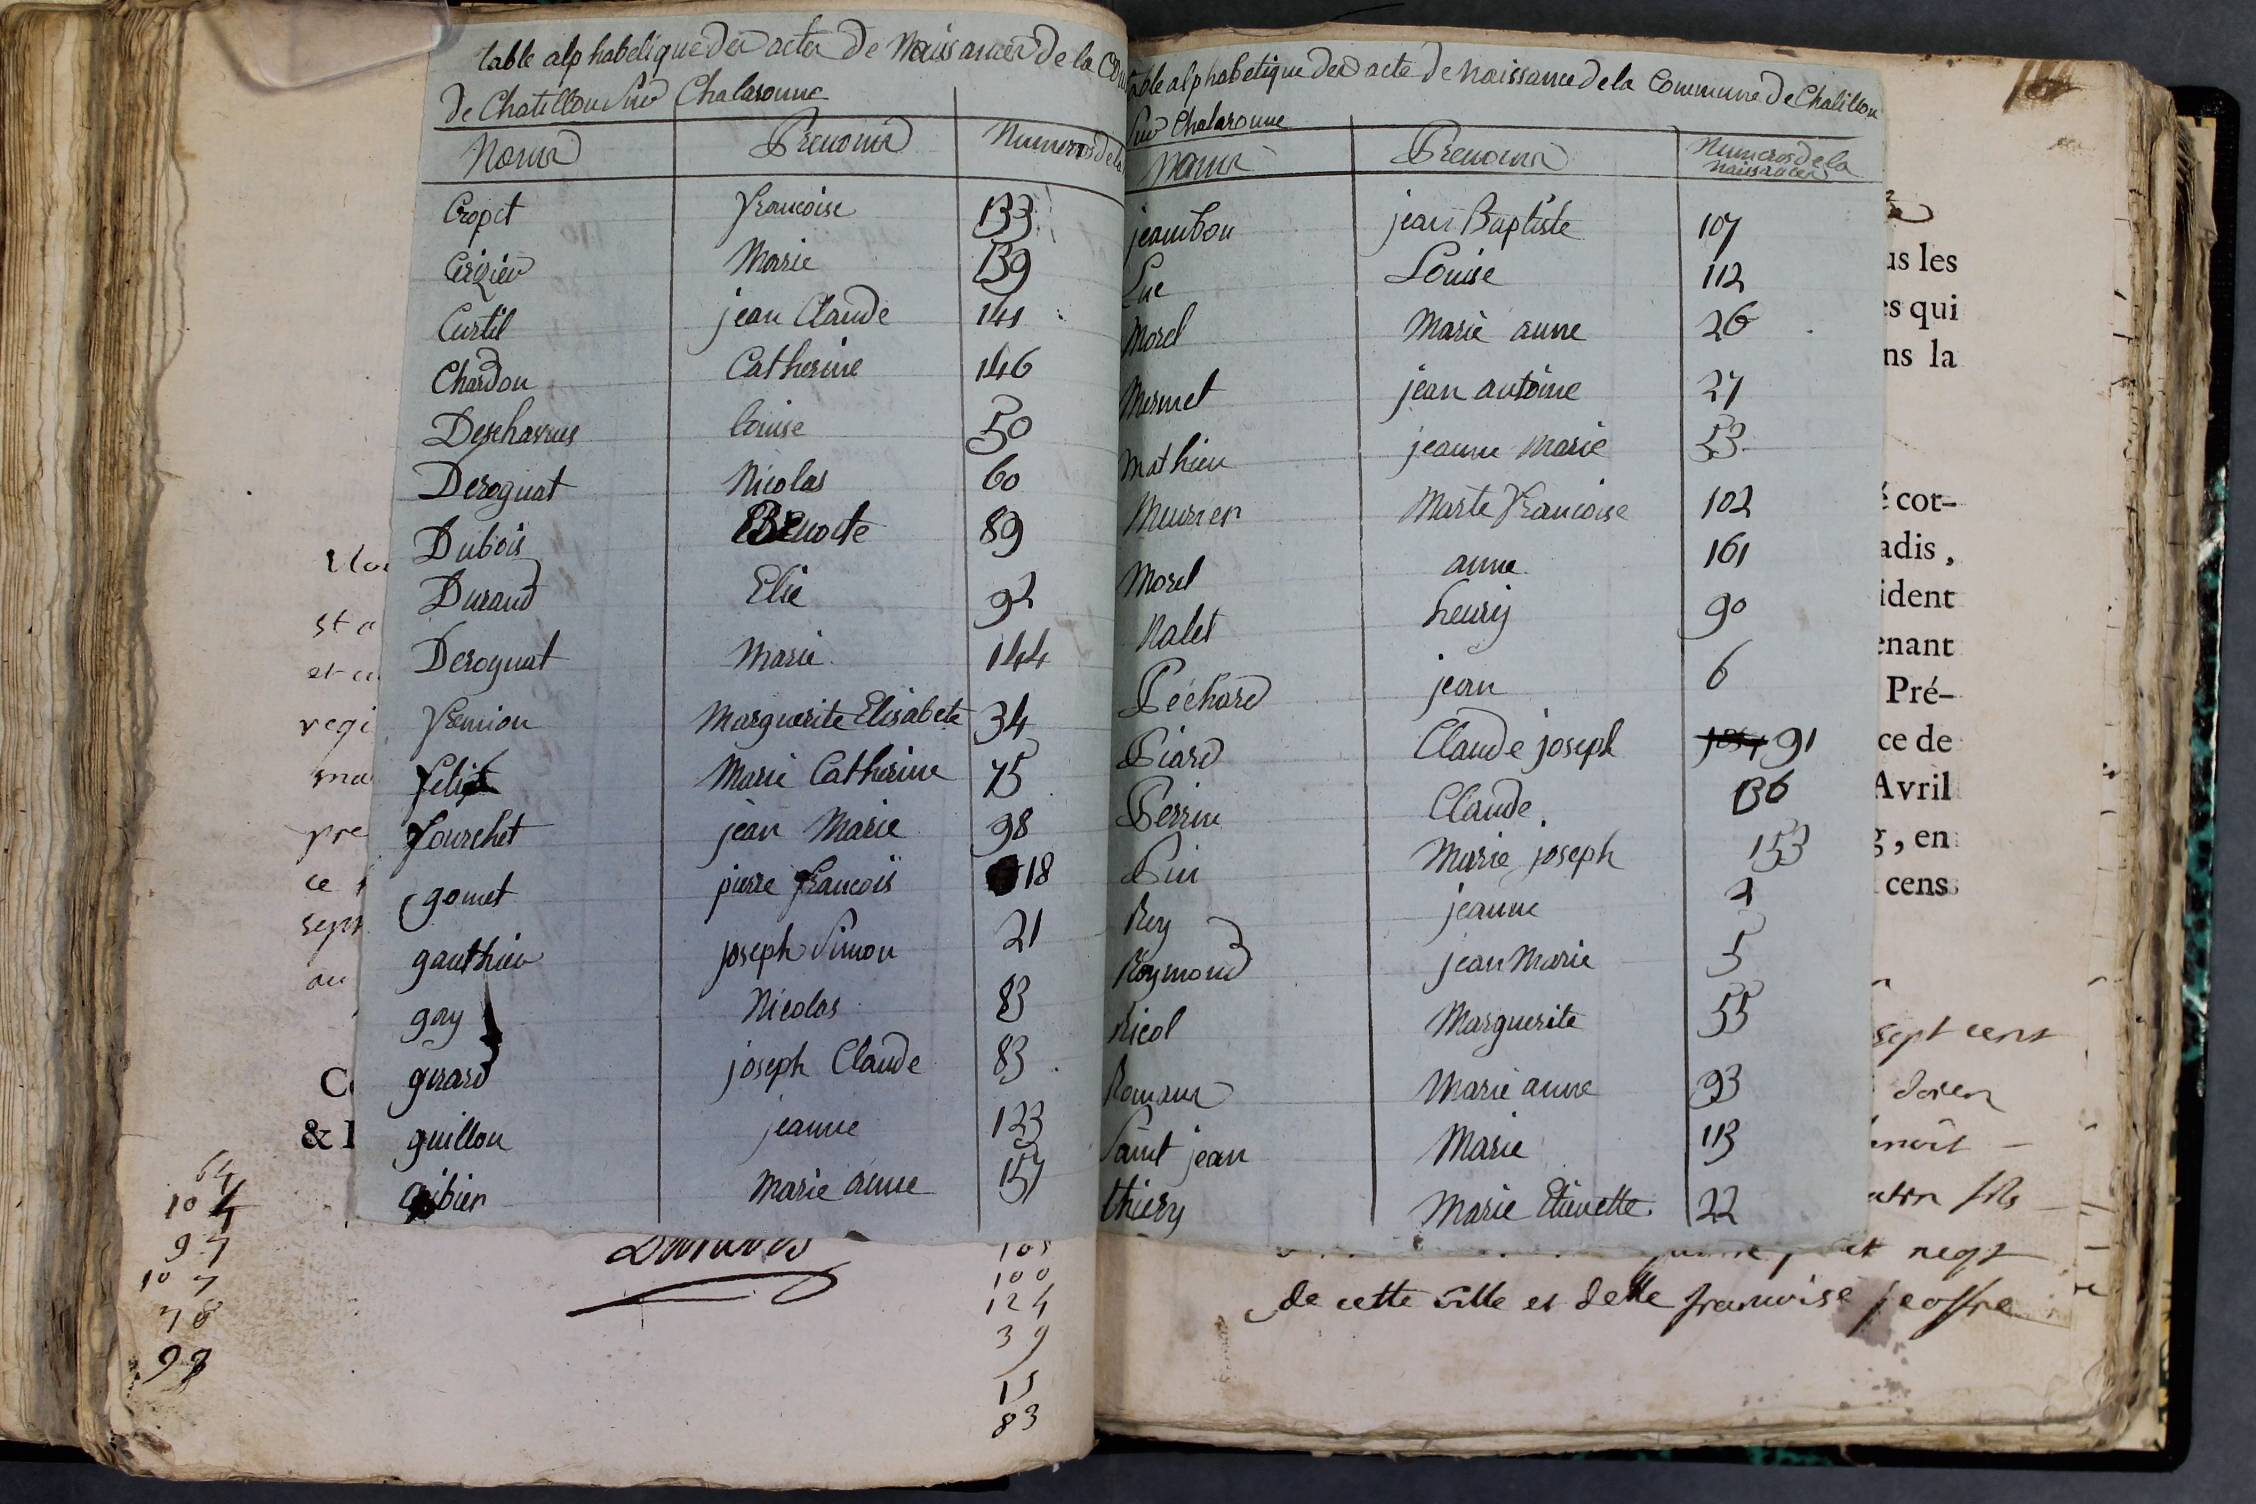 table alphabetique des actes de Naissances de la Com
de Chatillon Sur Chalaronne
Noms Prenoms Numeros de la
Cropet francoise 133
Crizieu Marie 139
Curtil jean Claude 141
Chardon Catherine 146
Deschavnes louise 50
Derognat Nicolas 60
Dubois Benoite 89
Durand Elie 92
Derognat Marie 144
fremion Marguerite Elisabete 34
felix Marie Catherine 75
fourchet jean Marie 98
gomet pierre francois 18
gauthier joseph Simon 21
gay Nicolas 83
girard joseph Claude 83
guillon jeanne 123
gibier Marie anne 157
64
104
97
107
78
98
105
100
124
39
15
83
table alphabetique des acte de Naissance de la Commune de Chatillon
Sur Chalaronne
Noms Prenoms Numeros de la
Naissances
jeambon jean Baptiste 107
Luc Louise 112
Morel Marie anne 26
Mermet jean antoine 27
Mathieu jeanne Marie 53
Meunier Marte francoise 102
Morel anne 161
Nalet henrij 90
Pechard jean 6
Piard Claude joseph 91
Perrin Claude 136
Pin Marie joseph 153
Rey jeanne
Raymond jean Marie 5
Ricol Marguerite 55
Romans Marie anne 93
Saint jean Marie 113
thiery Marie Etienette 22
us les
es qui
ns la
é cot-
adis,
ident
enant
Pré-
ce de
Avril
g, en
cens
sept cent
fils
negt
de cette ville et delle francoise jeoffre